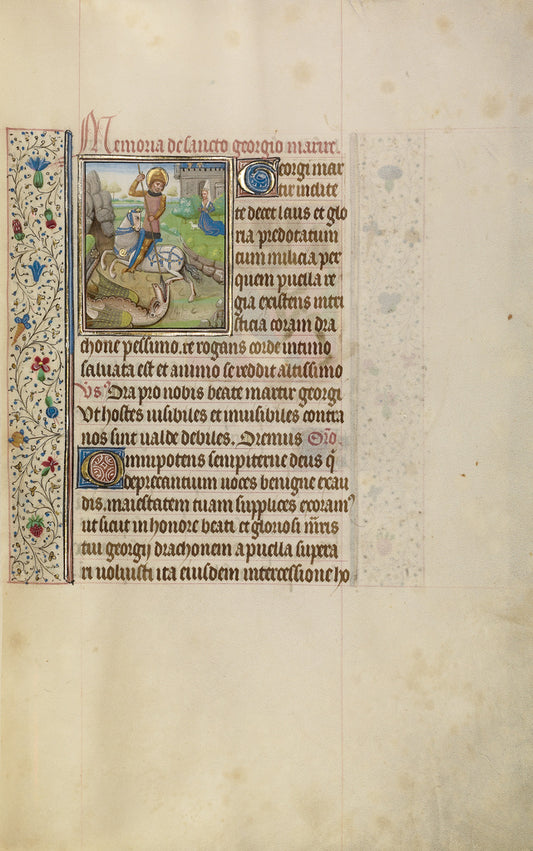 Memoria de sancto georgio martire.
Georgi mar
tir inclite
te decet laus et glo
ria predotatum
cum milicia per
quem puella re
gia existens in tri
sticia coram dra
chone pessimo. te rogans corde intimo
salvata est et animo se reddit altissimo
Vs Ora pro nobis beate martir georgi
Vt hostes uisibiles et inuisibiles contra
nos sint ualde debiles. Oremus Oro.
Omnipotens sempiterne deus q̄
deprecantium uoces benigne exau
dis. maiestatem tuam supplices exoram9
ut sicut in honore beati et gloriosi mr̄is
tui georgii drachonem a puella supera
ri uoluisti ita eiusdem intercessione ho